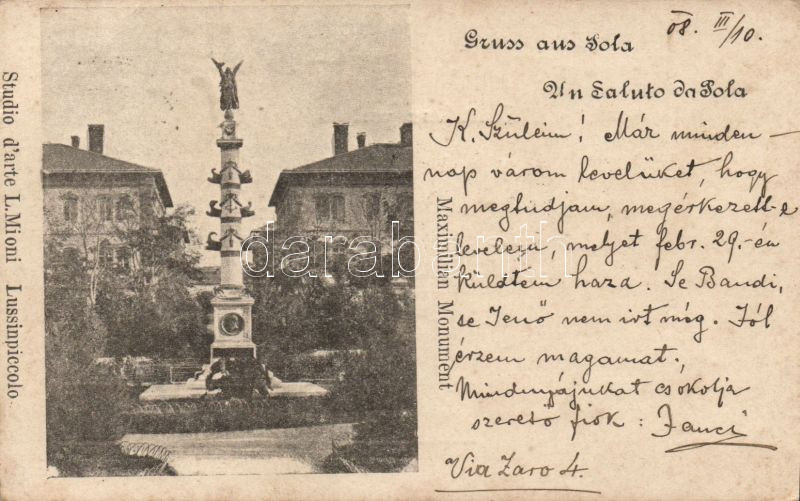 Gruss aus Pola
08. III/10.
Un Saluto da Pola
K. Szüleim! Már minden-
nap várom levelüket, hogy
megtudjam, megérkezett-e
levelem, melyet febr. 29.-én
küldtem haza. Se Bandi,
se Jenő nem irt még. Jól
érzem magamat.
Mindnyájukat csókolja
szerető fiók: Jancsi
Via Zaro 4.
Maximilian Monument
Studio d'arte L. Mioni Lussinpiccolo
darabanth.com